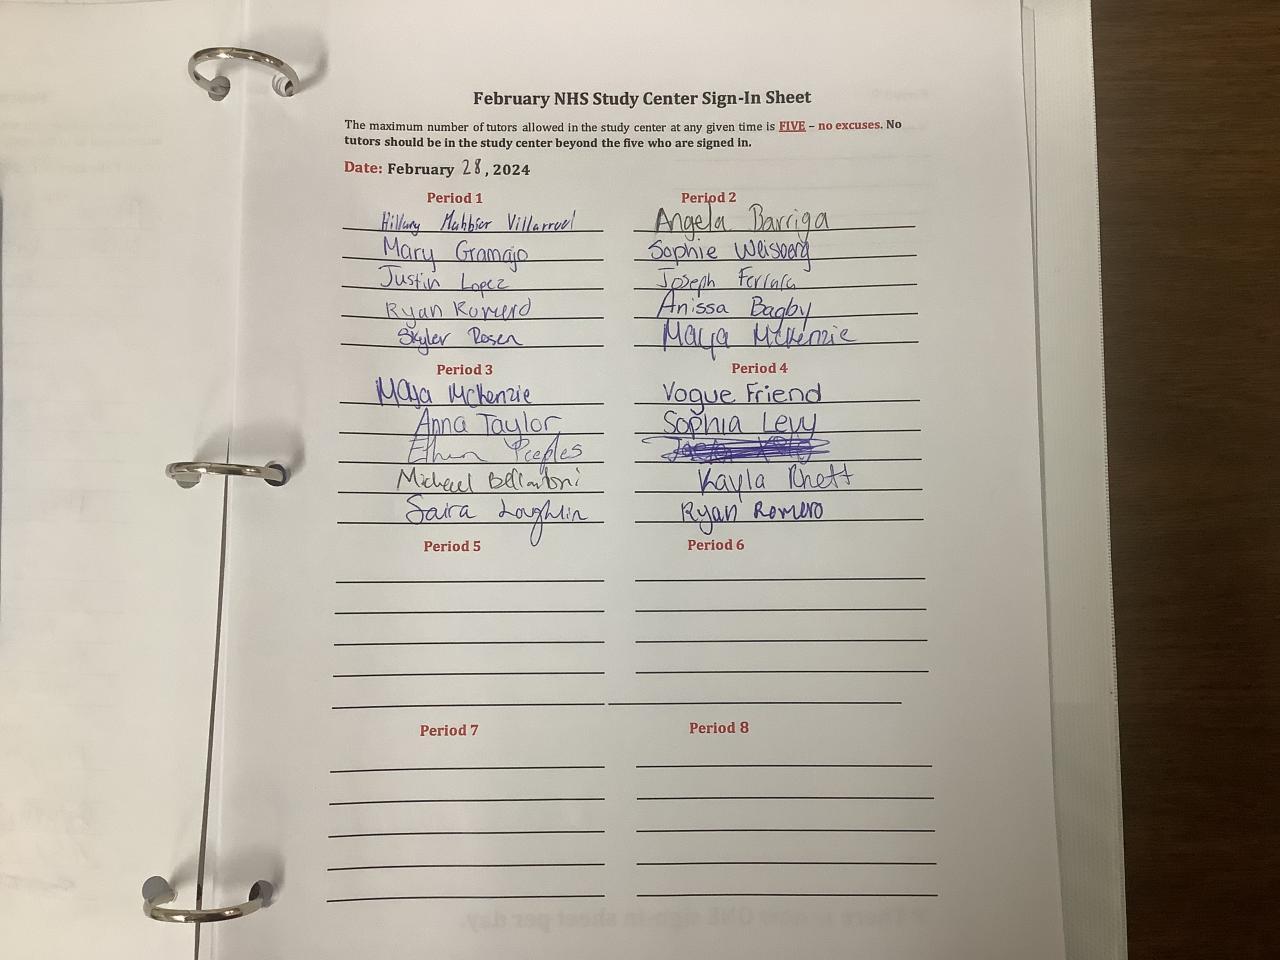 February NHS Study Center Sign-In Sheet
The maximum number of tutors allowed in the study center at any given time is FIVE – no excuses. No
tutors should be in the study center beyond the five who are signed in.
Date: February 28, 2024
Period 1
Hillary Villarruel
Mary Gramajo
Justin Lopez
Ryan Romero
Skyler Rosen
Period 2
Angela Barriga
Sophie Weisberg
Joseph Ferrara
Anissa Bagby
Maya McKenzie
Period 3
Maya McKenzie
Anna Taylor
Ethan Peeples
Michael Bellantoni
Saira Loughlin
Period 4
Vogue Friend
Sophia Levy
Kayla Rhett
Ryan Romero
Period 5
Period 6
Period 7
Period 8